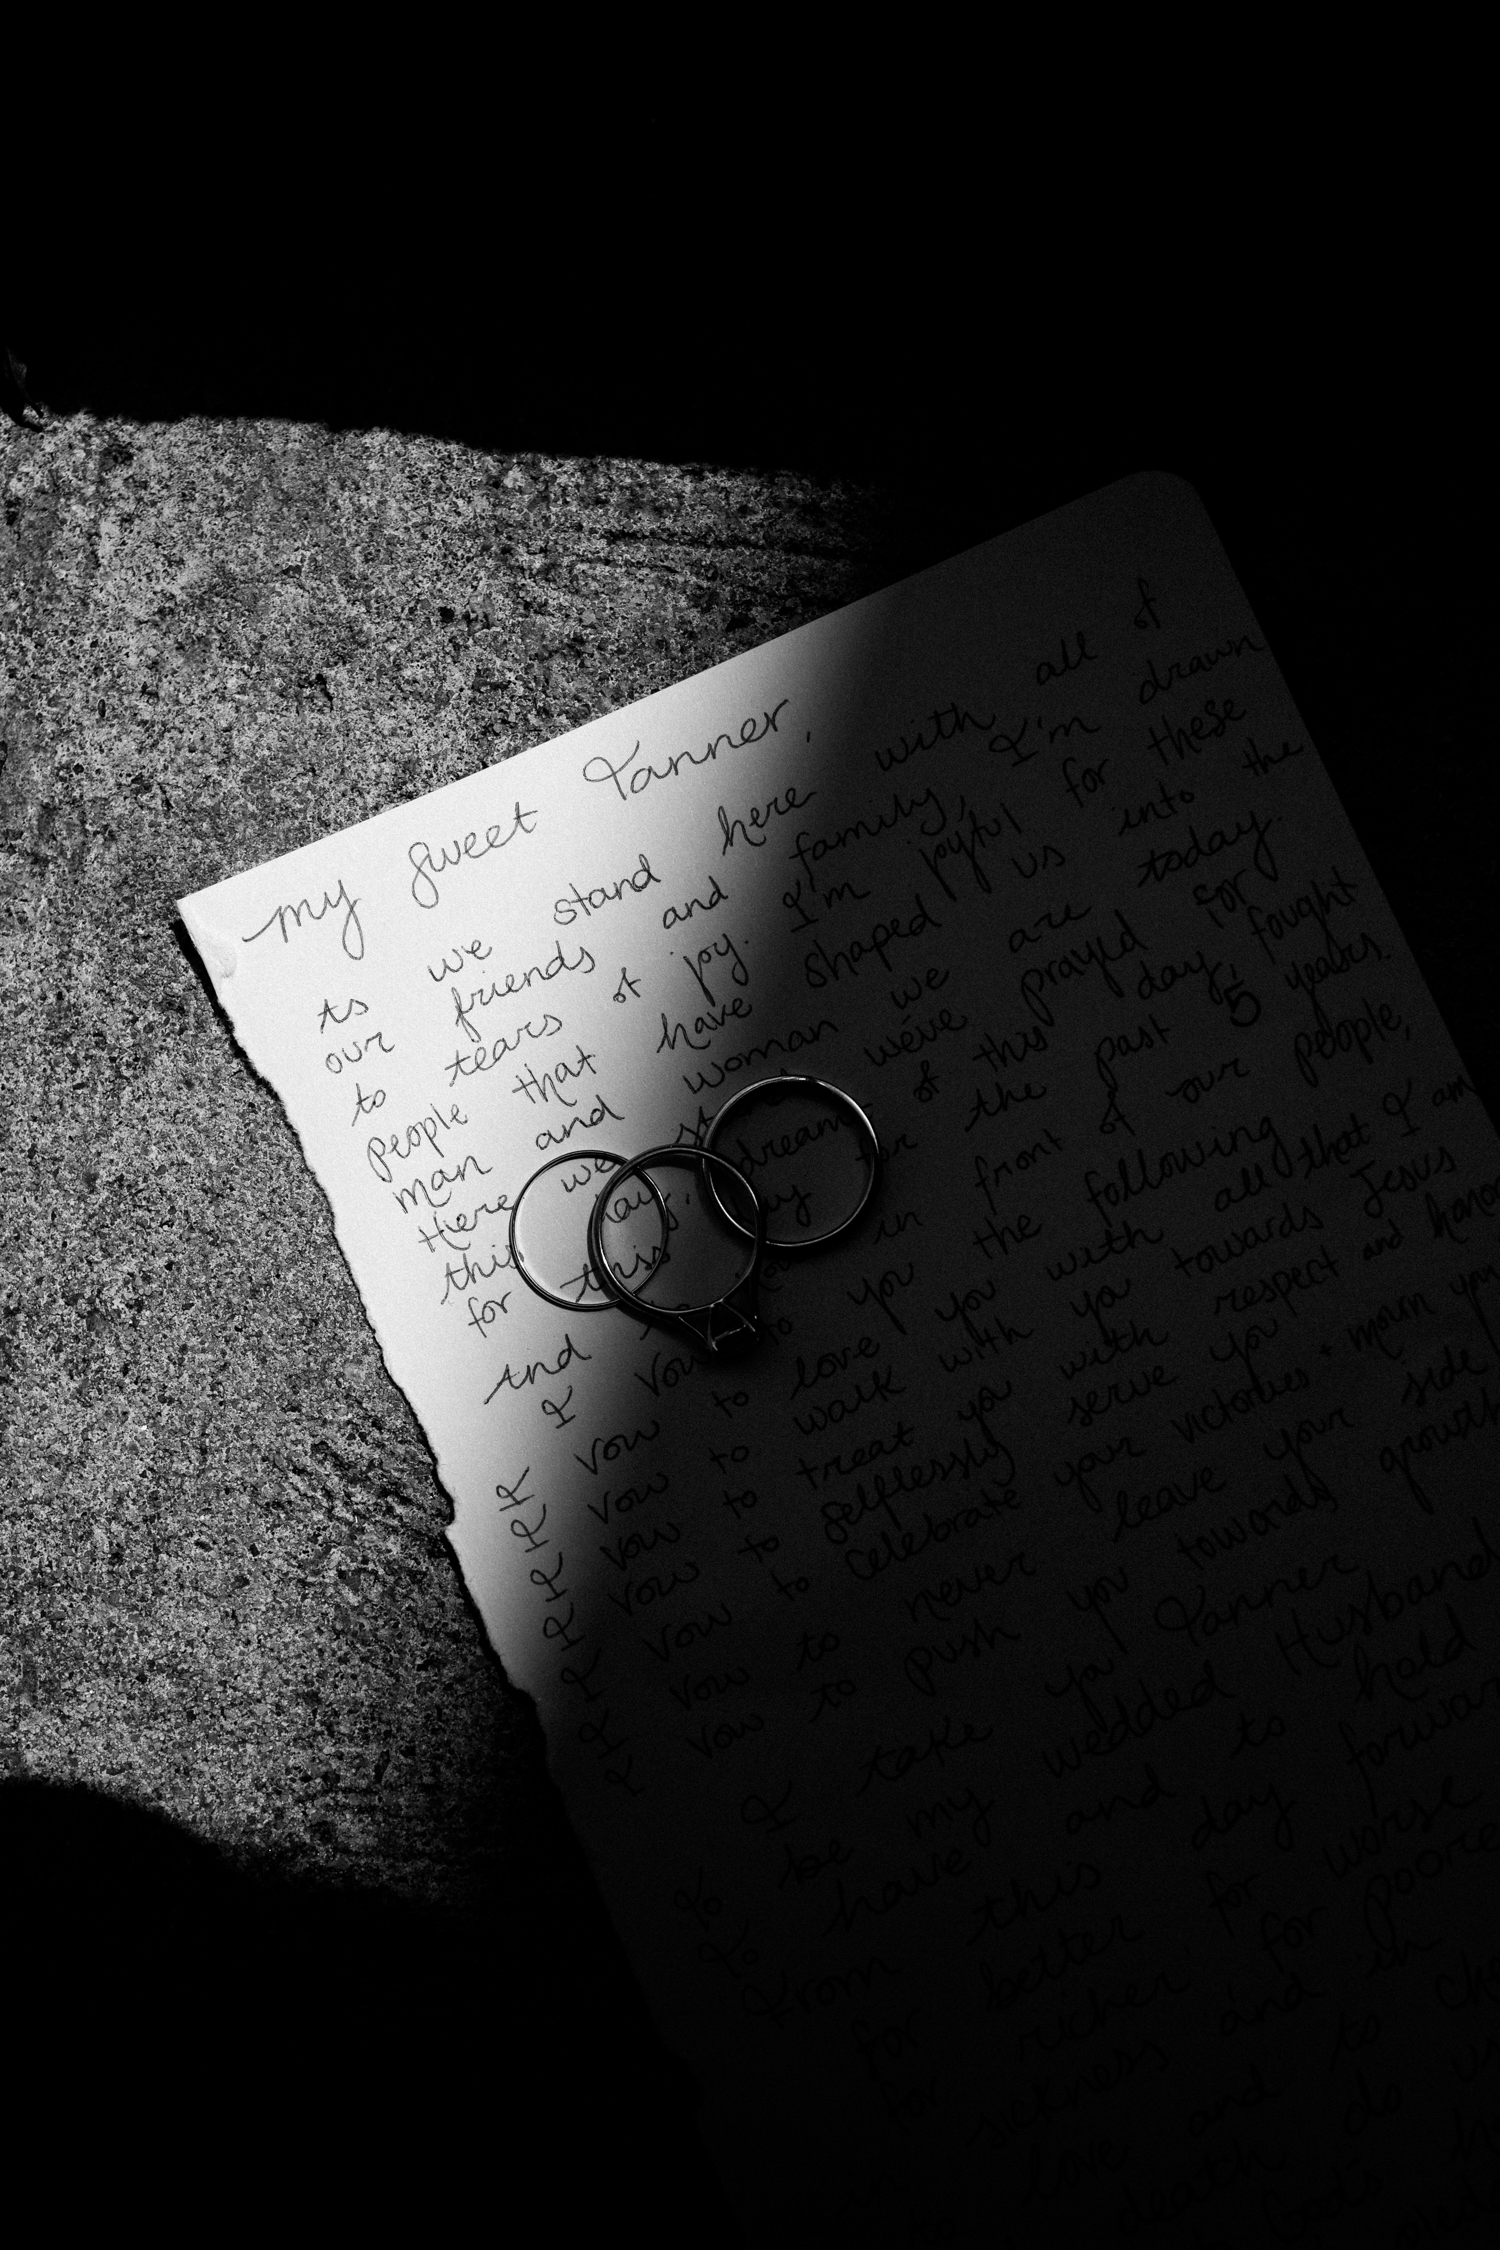 my sweet Tanner,
As we stand here with all of
our friends and family, I'm drawn
to tears of joy. I'm joyful for these
people that have shaped us into the
man and woman we are today.
Here we we've prayed for
this day, dream of this day, fought
for this for the past 5 years.
And in front of our people,
I vow to you the following
I vow to love you with all that I am
I vow to walk with you towards Jesus
I vow to treat you with respect and honor
I vow to selflessly serve you
I vow to celebrate your victories + mourn your
I vow to never leave your side
I vow to push you towards growth
I take you Tanner
To be my wedded Husband
To have and to hold
From this day forward
for better for worse
for richer for poorer
in sickness and in
to love and to
death do us
God's